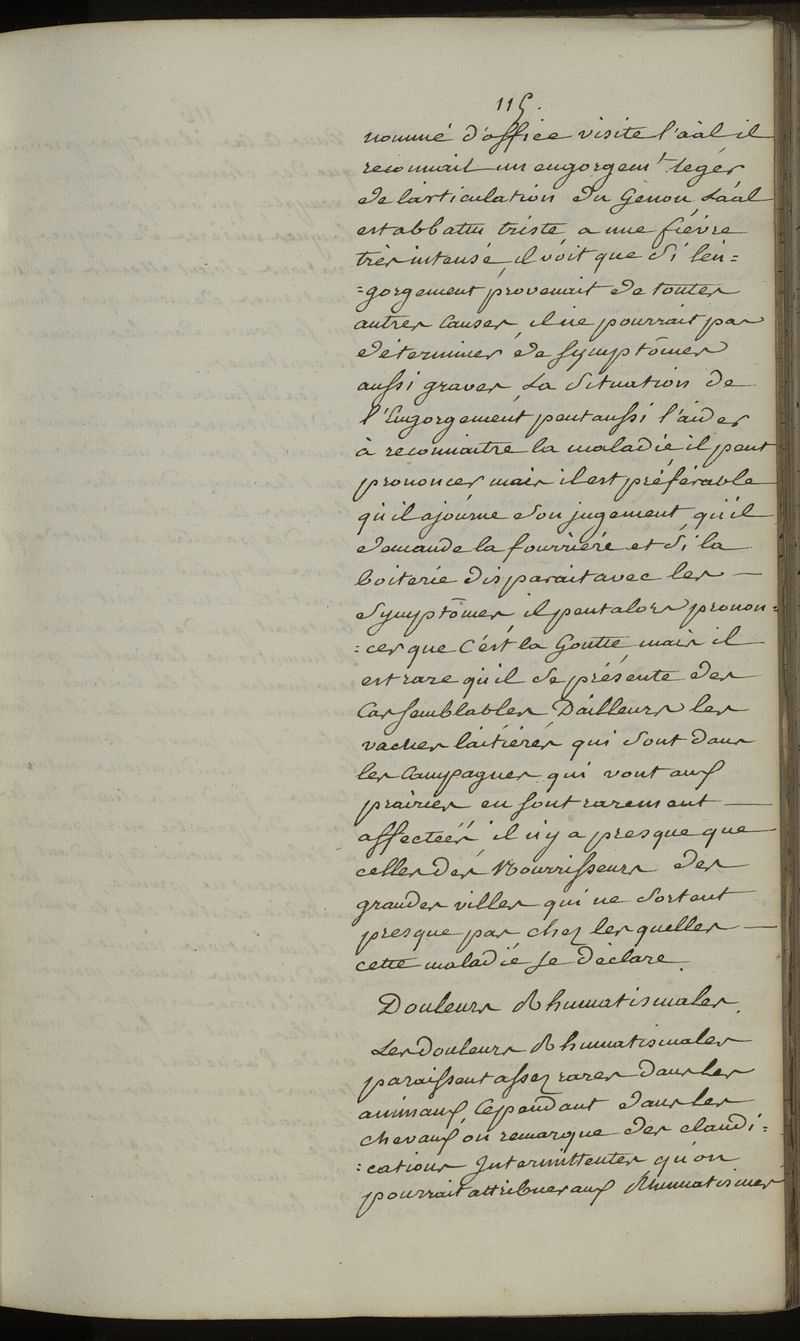 115.
nommé d'office visite l'aâl il
reconnait un engorgemt. legér
de l'articulation du Genou L'aâl
est abbattu triste a une fiévre
très intense, il voit que Si l'en=
=gorgement provenait de toutes
autres Causes, il ne pourrait pas
déterminer de Symptômes
aussi graves La Situation de
l'Engorgement peut aussi l'aider
à reconnaitre la maladie il peut
prononcer mais il est préférable
qu'il ajourne son jugement qu'il
demande la fourriere et Si la
boiterie disparait avec les —
Symptômes il peut alors pronon=
=cer que C'est la Goutte mais il
est rare qu'il se présente des
Cas semblables D'ailleurs les
vaches laitiéres qui sont dans
les Campagnes qui vont aux
prairies en sont rarement —
affecteés il n'y a presque que
celles des Nourrisseurs des
grandes villes qui ne sortent
presque pas chez lesquelles —
cette maladie se déclare.
Douleurs Rhumatismales.
Les douleurs Rhumatismales
paraissent assez rares dans les
animaux Cependant dans les
chevaux on remarque des claudi=
=cations Intermittentes qu'on
pourrait attribuer aux Rhumatismes